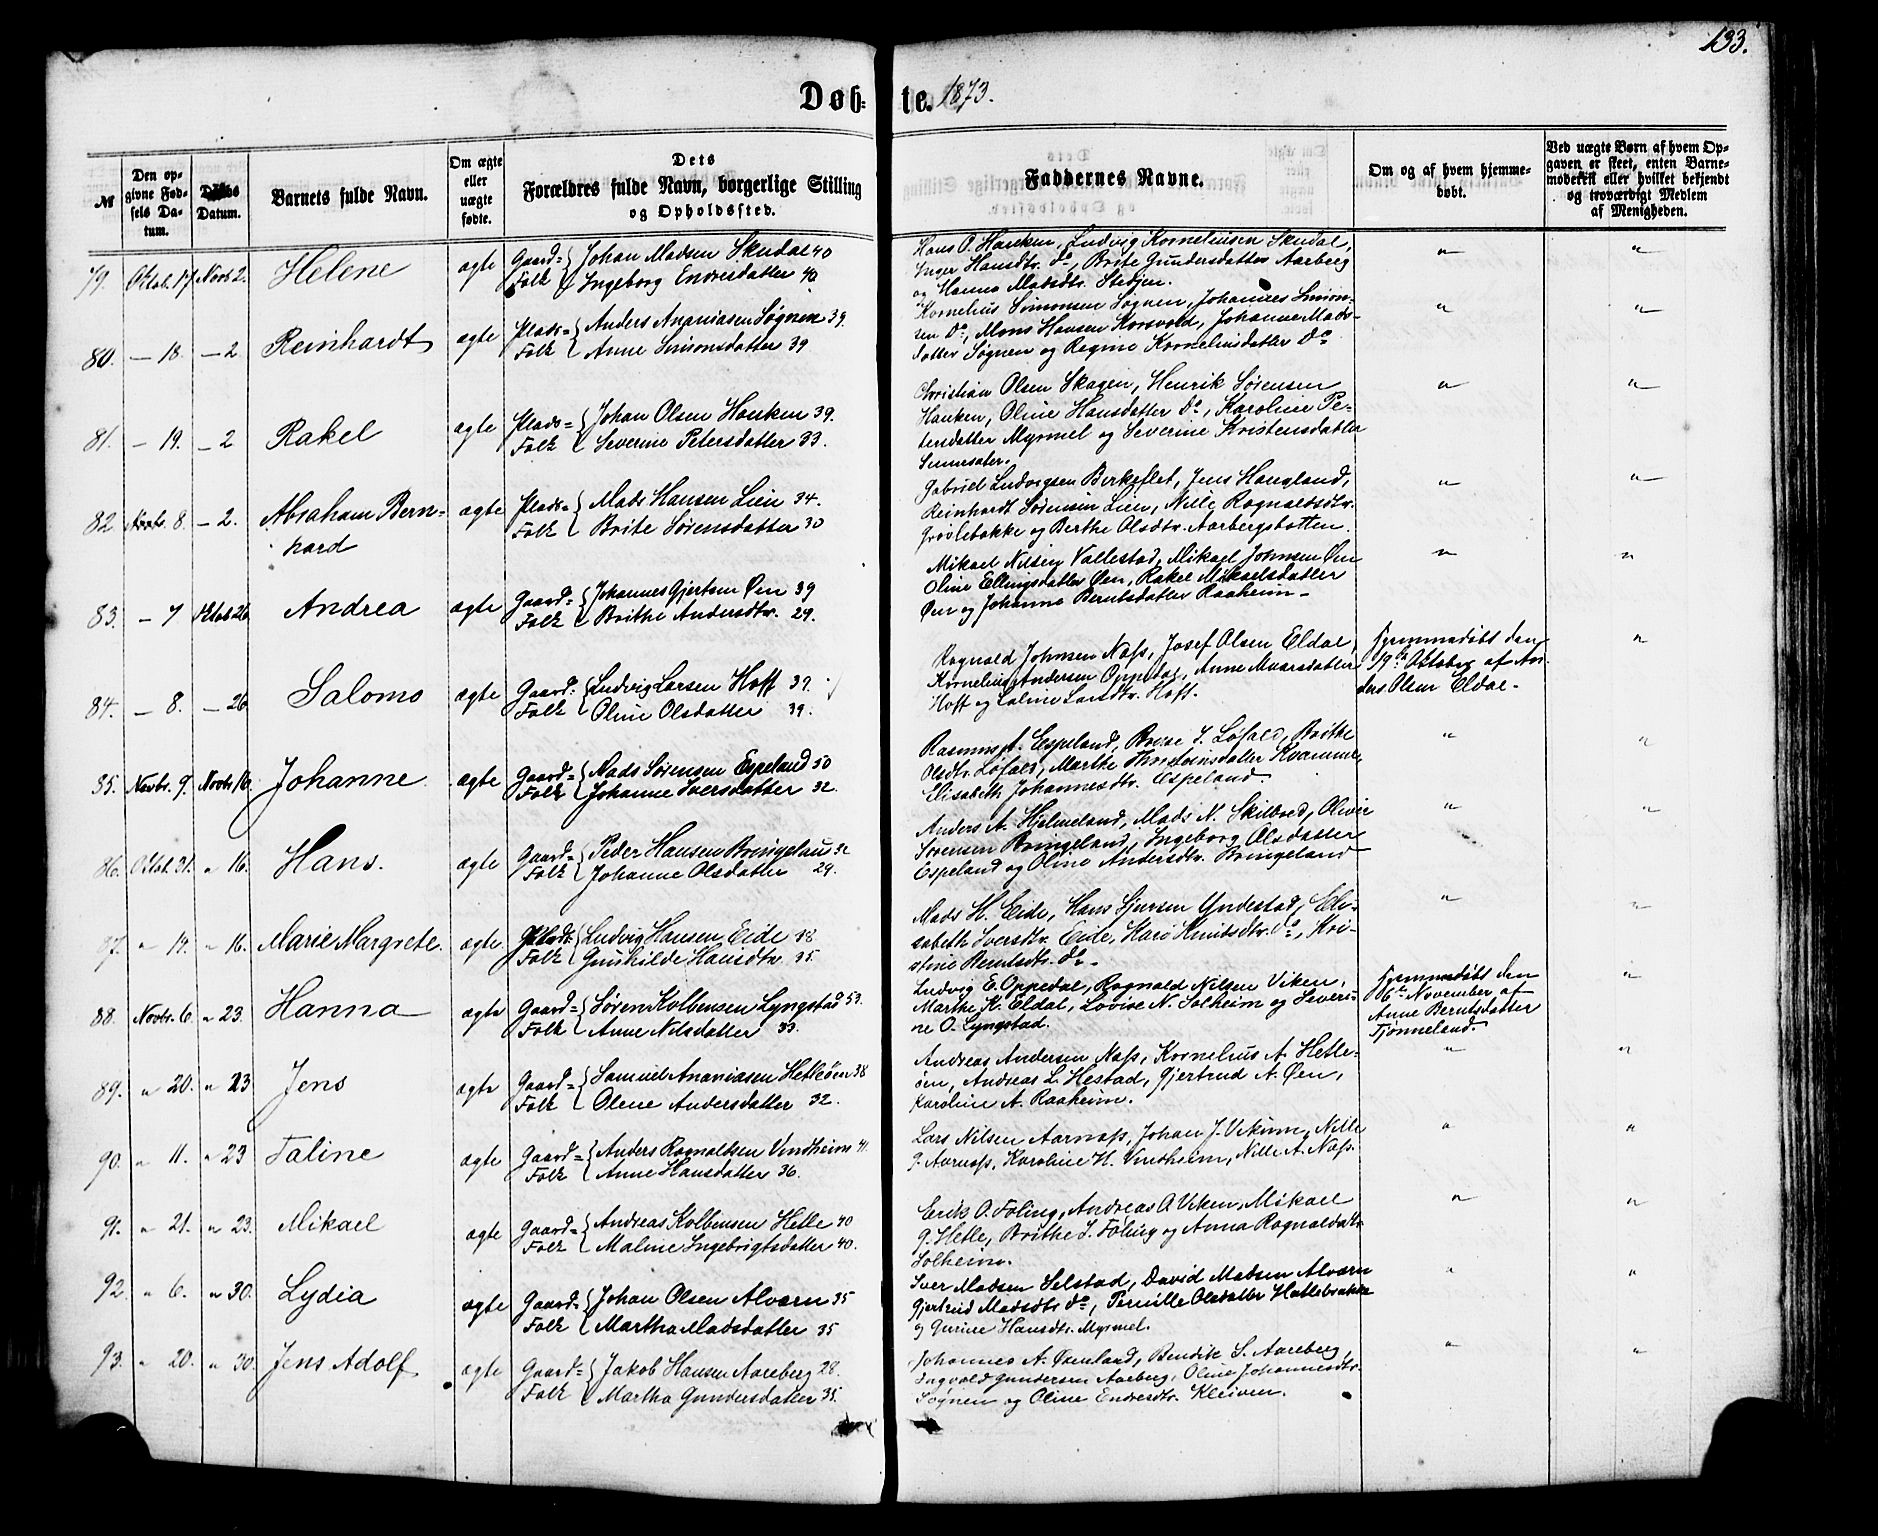 133.
Døb- te. 1873.
№
Den op-
givne Fød-
sels Da-
tum.
Døbs
Datum.
Barnets fulde Navn.
Om ægte
eller
uægte
fødte.
Dets
Forældres fulde Navn, borgerlige Stilling
og Opholdssted.
Faddernes Navne.
Om og af hvem hjemme-
døbt.
Ved uægte Børn af hvem Op-
gaven er skeet, enten Barne-
moderen eller hvilket bekjendt
og troværdigt Medlem
af Menigheden.
79. Oktob. 17 Novb 2. Helene ægte Gaard= Folk { Johan Madsen Skudal 40
Ingeborg Endresdatter 40
Hans O. Hauken, Ludvig Korneliusen Skudal,
Inger Hansdtr. do, Brite Gundersdatter Aarberg
og Hanna Madsdtr. Stedjen.
" "
80. — 18. — 2 Reinhardt ægte Plads= Folk { Anders Ananiasen Søgnen 39.
Anne Simonsdatter 39
Kornelius Simonsen Søgnen, Johannes Simon-
sen Do, Mons Hansen Korsvold, Johanne Mads-
datter Søgnen og Regine Kornelinsdatter Do
" "
81. — 19. — 2 Rakel ægte Plads= Folk { Johan Olsen Hauken 39.
Severine Petersdatter 33.
Christian Olsen Skagen, Henrik Sørensen
Hauken, Oline Hansdatter Do, Karoline Pe-
tersdatter Myrmel og Severine Kristensdatter
" "
82 Novbr. 8. — 2. Abraham Bern-
hard ægte Plads= Folk { Mads Hansen Lien 34.
Brite Sørensdatter 30
Gabriel Ludvigsen Birkeflet, Jens Haugland,
Reinhardt Sørensen Lien, Nille Rognaldsdtr.
og Berthe Olsdtr. Aarbergsbotten.
" "
83. — 7 Oktob 26 Andrea ægte Gaard= Folk { Johannes Gjertsen Øen 39
Brithe Andersdtr. 29.
Mikael Nilsen Vallestad, Mikael Johnsen Øen
Oline Ellingsdatter Øen, Rakel Mikaelsdatter
Øen og Johanna Berntsdatter Raaheim —
" "
84. — 8. — 26 Salomo ægte Gaard- Folk { Ludvig Larsen Hoff 39.
Oline Olsdatter 39.
Rognald Johnsen Næss, Josef Olsen Eldal,
Kornelius Andersen Oppedal, Anne
Hoff og Larsdtr. Hoff.
Hjemmedøbt den
19de Oktober af An-
ders Olsen Eldal.
"
85. Novbr. 9. Novbr 16. Johanne ægte Gaard= Folk { Mads Sørensen Espeland 50
Johanne Iversdatter 32.
Rasmus A. Espeland, J. Løfald, Brithe
Olsdtr. Løfald, Marthe Thorsteinsdatter Kvamme,
Elisabeth Johannesdtr. Espeland.
" "
86. Oktob. 31. " 16. Hans. ægte Gaard= Folk { Peder Hansen Bringelan 32
Johanne Olsdatter 29.
Anders A. Hjelmeland, Mads N. Skilbred, Oliver
Sørensen Bringeland, Ingeborg Olsdatter
Espeland og Oline Andersdtr. Bringeland
" "
87. " 14. " 16. Marie Margrete. ægte Folk { Ludvig Hansen Eide 38
Gunhilde Hansdtr 35
Mads H. Eide, Hans Sjursen Yndestad, Eli-
sabeth Iversdtr. Eide, Kari Knutsdtr. do, Kri-
stine Berntsdtr. do.
" "
88. Novbr. 6. " 23. Hanna ægte Gaard= Folk { Søren Kolbensen Lyngstad 53.
Anne Nilsdatter 33.
Ludvig E. Oppedal, Rognald Nilsen Viken,
Marthe K. Eldal, Lovise N. Solheim og Severi-
ne O. Lyngstad.
Hjemmedøbt den
6te November af
Anne Berntsdatter
Tjønneland.
"
89. " 20. " 23 Jens ægte Gaard= Folk { Samuel Ananiasen Hetleøen 38
Olene Andersdatter 32.
Andreas Andersen Næss, Kornelius A. Hetle-
øen, Andreas L. Hestad, Gjertrud A. Øen,
Karoline A. Raaheim.
" "
90. " 11. " 23 Taline ægte Gaard= Folk { Anders Rognaldsen Vindheim 41.
Anne Hansdatter 36.
Lars Nilsen Aarnæss, Johan J. Vikum, Nille
G. Aarnæss, Karoline H. Vindheim, Nille A. Næss.
" "
91. " 21. " 23. Mikael ægte Gaard= Folk { Andreas Kolbensen Hetle 40
Maline Ingebrigtsdatter 40.
Erik O. Føling, Andreas A. Viken, Mikael
G. Hetle, Brithe S. Føling og Anna Rognaldsdtr
Solheim.
" "
92. " 6. " 30. Lydia ægte Gaard= Folk { Johan Olsen Alværn 35
Martha Madsdatter 35
Iver Madsen Selstad, David Madsen Alværn
Gjertrud Madsdtr. do, Pernille Olsdatter Hatlebrække
og Gurine Hansdtr. Myrmel.
" "
93. " 20. " 30. Jens Adolf ægte Gaard= Folk { Jakob Hansen Aareberg 28.
Martha Gundersdatter 35.
Johannes A. Osenland, Bendik S. Aareberg,
Ingvald Gundersen Aarberg, Oline Johannesdtr.
Søgnen og Oline Endresdtr. Kleiven.
" "